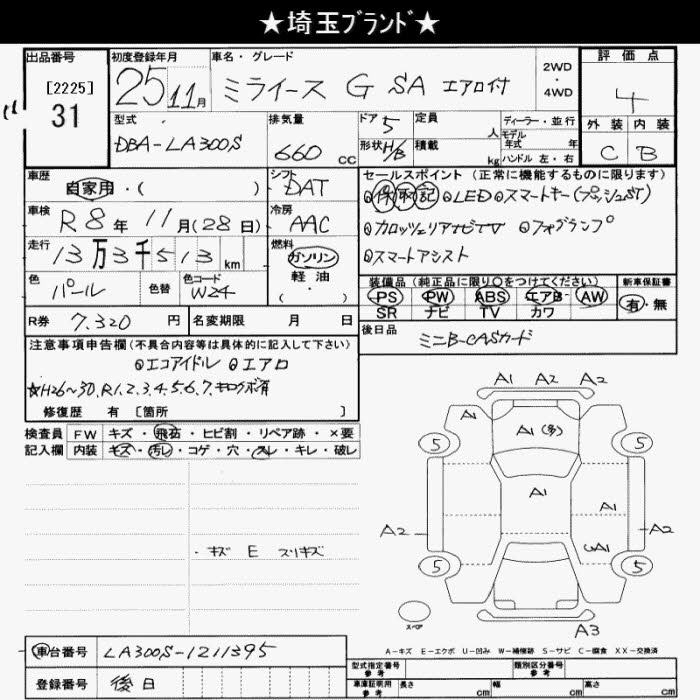 ★埼玉ブランド★
出品番号
[2225]
31
初度登録年月
25 11月
車名・グレード
ミライース G SA エアロ付
2WD
・
4WD
評価点
4
外装 内装
C B
型式
DBA-LA300S
排気量
660 CC
ドア 5
形状 H/B
定員 人
積載 kg
ディーラー・並行
モデル年式 年
ハンドル 左・右
車歴
自家用・( )
シフト
DAT
車検
R8年 11月(28日)
冷房
AAC
走行
13万3千513km
燃料
ガソリン
軽・油
( ・ )
色
パール
色替
色コード
W24
セールスポイント (正常に機能するものに限ります)
◎保取記 ◎LED ◎スマートキー(プッシュST)
◎カロッツェリアナビTV ◎フォグランプ
◎スマートアシスト
装備品 (純正品に限り○をつけてください)
PS PW ABS エアB AW
SR ナビ TV カワ
新車保証書
有・無
R券 7,320 円
名変期限 月 日
後日品
ミニB-CASカード
注意事項申告欄(不具合内容等は具体的に記入して下さい)
◎エコアイドル ◎エアロ
☆H26~30.R1.2.3.4.5.6.7.キロク有
修復歴 有 [箇所 ]
検査員 FW キズ・飛石・ヒビ割・リペア跡・×要
記入欄 内装 キズ・汚レ・コゲ・穴・スレ・キレ・破レ
・キズ E スリキズ
A1 A2 A2
A1
A1(多)
5 5
A1
A1
A2 A2
A1
5 5
スペア
A3
A-キズ E-エクボ U-凹み W-補修跡 S-サビ C-腐食 XX-交換済
車台番号 LA300S-1211395
登録番号 後日
型式指定番号 参考
類別区分番号 参考
車庫証明用 参考
長さ cm 幅 cm 高さ cm